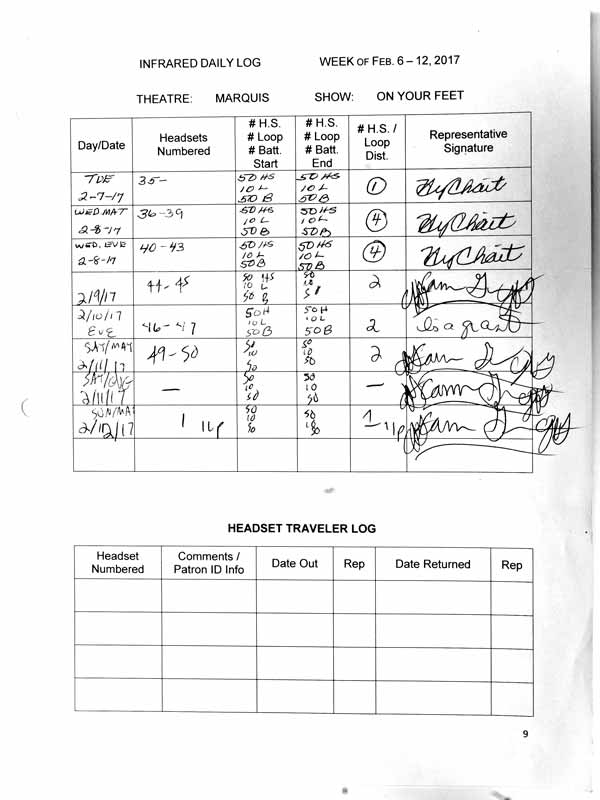 INFRARED DAILY LOG WEEK OF FEB. 6 – 12, 2017
THEATRE: MARQUIS SHOW: ON YOUR FEET
Day/Date
Headsets
Numbered
# H.S.
# Loop
# Batt.
Start
# H.S.
# Loop
# Batt.
End
# H.S. /
Loop
Dist.
Representative
Signature
TUE
2-7-17
35-
50 HS
10 L
50 B
50 HS
10 L
50 B
1
WED MAT
2-8-17
36-39
50 HS
10 L
50 B
50 HS
10 L
50 B
4
WED. EVE
2-8-17
40-43
50 HS
10 L
50 B
50 HS
10 L
50 B
4
2/9/17
44-45
50 HS
10 L
50 B
50
10
2
2/10/17
EVE
46-47
50H
10L
50B
50H
10L
50B
2
SAT/MAT
2/11/17
49-50
50
10
50
50
10
50
2
SAT/
2/11/17
—
50
10
50
50
10
50
—
SUN/MAT
2/12/17
1
50
10
50
50
10
50
1
HEADSET TRAVELER LOG
Headset
Numbered
Comments /
Patron ID Info
Date Out
Rep
Date Returned
Rep
9